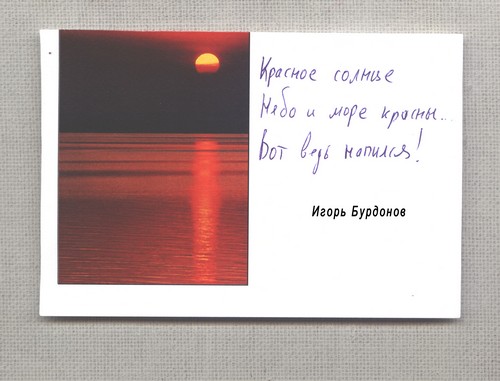 Красное солнце
Небо и море красны...
Вот ведь напился!
Игорь Бурдонов